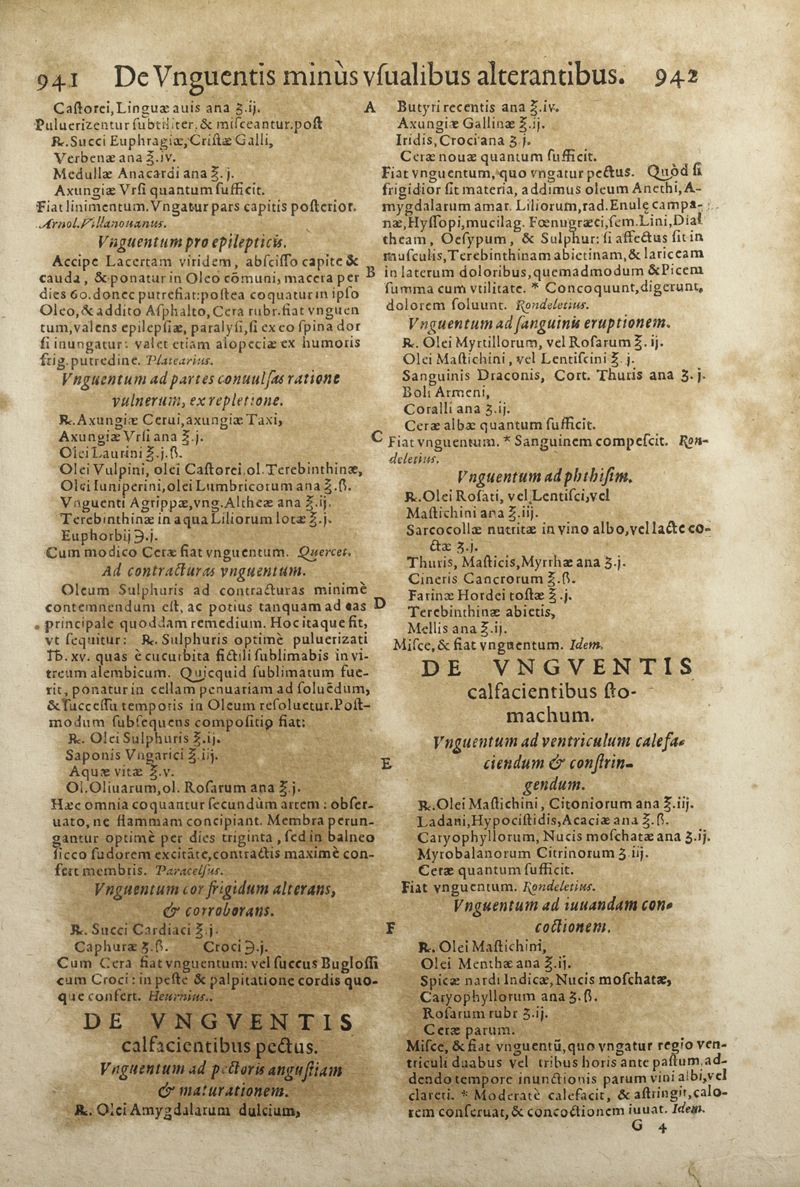 941 De Vnguentis minùs vſualibus alterantibus. 942
Caſtorei, Linguæ auis ana ʒ.ij.
Puluerizentur ſubtiliter, & miſceantur. poſt
℞. Succi Euphragiæ, Criſtæ Galli,
Verbenæ ana ℥.iv.
Medullæ Anacardi ana ℥. j.
Axungiæ Vrſi quantum ſufficit.
Fiat linimentum. Vngatur pars capitis poſterior.
Arnol. Villanouanus.
Vnguentum pro epilepticis.
Accipe Lacertam viridem, abſciſſo capite &
cauda, & ponatur in Oleo cōmuni, macera per
dies 60. donec putrefiat: poſtea coquatur in ipſo
Oleo, & addito Aſphalto, Cera rubr. fiat vnguen
tum, valens epilepſiæ, paralyſi, ſi ex eo ſpina dor
ſi inungatur: valet etiam alopeciæ ex humoris
frig. putredine. Platearius.
Vnguentum ad partes conuulſas ratione
vulnerum, ex repletione.
℞. Axungiæ Cerui, axungiæ Taxi,
Axungiæ Vrſi ana ℥.j.
Olei Laurini ℥.j.ß.
Olei Vulpini, olei Caſtorei, ol. Terebinthinæ,
Olei Iuniperini, olei Lumbricorum ana ℥.ß.
Vnguenti Agrippæ, vng. Altheæ ana ℥.ij.
Terebinthinæ in aqua Liliorum lotæ ℥.j.
Euphorbij ℈.j.
Cum modico Ceræ fiat vnguentum. Quercet.
Ad contracturas vnguentum.
Oleum Sulphuris ad contracturas minimè
contemnendum eſt, ac potius tanquam ad eas
principale quoddam remedium. Hoc itaque fit,
vt ſequitur: ℞. Sulphuris optimè puluerizati
℔. xv. quas è cucurbita fictili ſublimabis in vi-
treum alembicum. Quicquid ſublimatum fue-
rit, ponatur in cellam penuariam ad ſoluēdum,
& ſucceſſu temporis in Oleum reſoluetur. Poſt-
modum ſubſequens compoſitio fiat:
℞. Olei Sulphuris ℥.ij.
Saponis Vngarici ℥.iij.
Aquæ vitæ ℥.v.
Ol. Oliuarum, ol. Roſarum ana ℥.j.
Hæc omnia coquantur ſecundùm artem: obſer-
uato, ne flammam concipiant. Membra perun-
gantur optimè per dies triginta, ſed in balneo
ſicco ſudorem excitāte, contractis maximè con-
fert membris. Paracelſus.
Vnguentum cor frigidum alterans,
& corroborans.
℞. Succi Cardiaci ℥.j.
Caphuræ ʒ.ß. Croci ℈.j.
Cum Cera fiat vnguentum: vel ſuccus Bugloſſi
cum Croci: in peſte & palpitatione cordis quo-
que confert. Heurnius.
DE VNGVENTIS
calfacientibus pectus.
Vnguentum ad pectoris anguſtiam
& maturationem.
℞. Olei Amygdalarum dulcium,
A
B
C
D
E
F
Butyri recentis ana ℥.iv.
Axungiæ Gallinæ ℥.ij.
Iridis, Croci ana ʒ j.
Ceræ nouæ quantum ſufficit.
Fiat vnguentum, quo vngatur pectus. Quòd ſi
frigidior ſit materia, addimus oleum Anethi, A-
mygdalarum amar. Liliorum, rad. Enulę campa-
næ, Hyſſopi, mucilag. Fœnugræci, ſem. Lini, Dial
theam, Oeſypum, & Sulphur: ſi affectus ſit in
muſculis, Terebinthinam abietinam, & lariceam
in laterum doloribus, quemadmodum & Picem
ſumma cum vtilitate. * Concoquunt, digerunt,
dolorem ſoluunt. Rondeletius.
Vnguentum ad ſanguinis eruptionem.
℞. Olei Myrtillorum, vel Roſarum ℥. ij.
Olei Maſtichini, vel Lentiſcini ℥. j.
Sanguinis Draconis, Cort. Thuris ana ʒ.j.
Boli Armeni,
Coralli ana ʒ.ij.
Ceræ albæ quantum ſufficit.
Fiat vnguentum. * Sanguinem compeſcit. Ron-
deletius.
Vnguentum ad phthiſim.
℞. Olei Roſati, vel Lentiſci, vel
Maſtichini ana ℥.iij.
Sarcocollæ nutritæ in vino albo, vel lacte co-
ctæ ʒ.j.
Thuris, Maſticis, Myrrhæ ana ʒ.j.
Cineris Cancrorum ℥.ß.
Farinæ Hordei toſtæ ℥.j.
Terebinthinæ abietis,
Mellis ana ℥.ij.
Miſce, & fiat vnguentum. Idem.
DE VNGVENTIS
calfacientibus ſto-
machum.
Vnguentum ad ventriculum calefa-
ciendum & conſtrin-
gendum.
℞. Olei Maſtichini, Citoniorum ana ℥.iij.
Ladani, Hypociſtidis, Acaciæ ana ℥.ß.
Caryophyllorum, Nucis moſchatæ ana ʒ.ij.
Myrobalanorum Citrinorum ʒ iij.
Ceræ quantum ſufficit.
Fiat vnguentum. Rondeletius.
Vnguentum ad iuuandam con-
coctionem.
℞. Olei Maſtichini,
Olei Menthæ ana ℥.ij.
Spicæ nardi Indicæ, Nucis moſchatæ,
Caryophyllorum ana ʒ.ß.
Roſarum rubr ʒ.ij.
Ceræ parum.
Miſce, & fiat vnguentū, quo vngatur regio ven-
triculi duabus vel tribus horis ante paſtum, ad-
dendo tempore inunctionis parum vini albi, vel
clareti. * Moderatè calefacit, & aſtringit, calo-
rem conſeruat, & concoctionem iuuat. Idem.
G 4